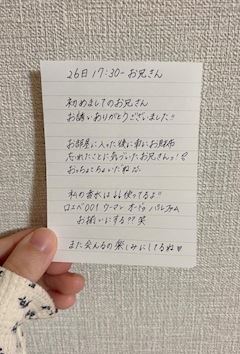 26日 17:30- お兄さん
初めましてのお兄さん
お誘いありがとうございました!!
お部屋に入った後に車にお財布
忘れたことに気づいたお兄さんっ!
おっちょこちょいだねw
私の香水は使ってるよ!!
ロエベ 001 ウーマン オードゥ パルファム
お揃いにする?? 笑
また会えるの楽しみにしてるね♥